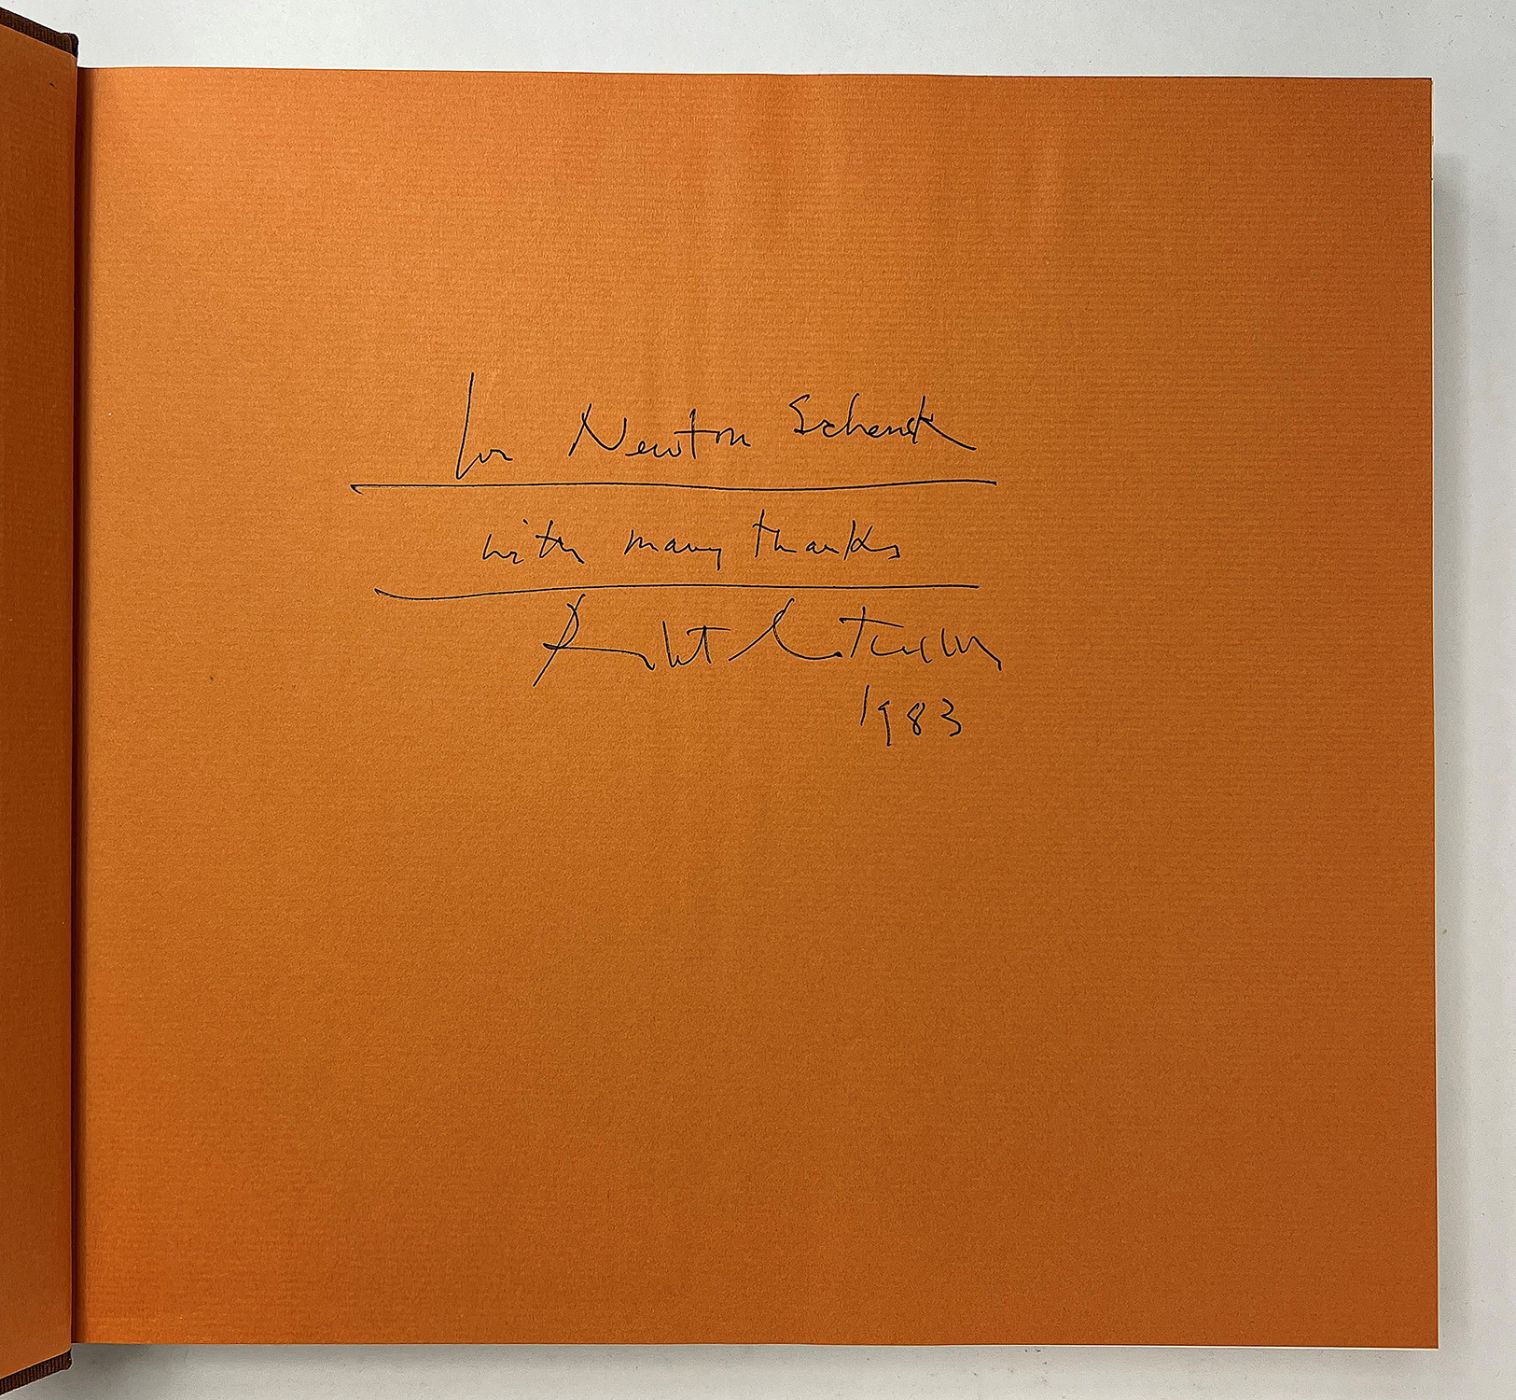 for Newton Schenck
with many thanks
1983